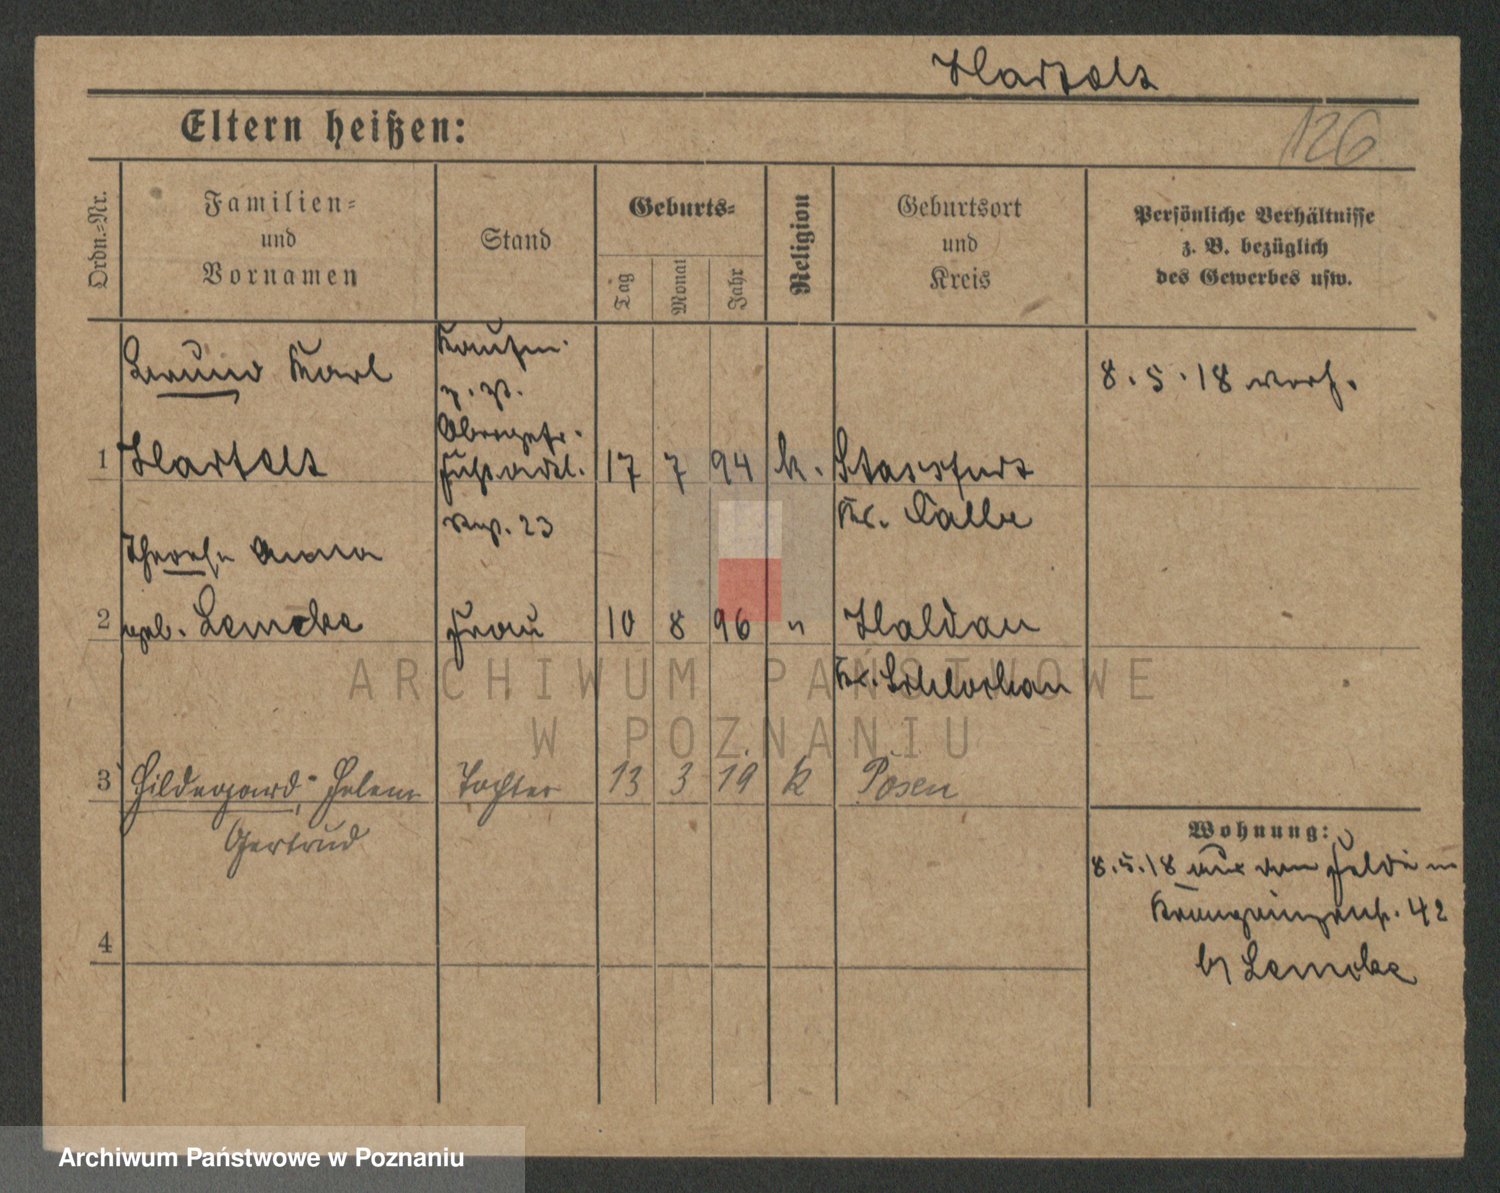 126
Eltern heißen:
Ordn.-Nr.
Familien-
und
Vornamen
Stand
Geburts-
Tag
Monat
Jahr
Religion
Geburtsort
und
Kreis
Persönliche Verhältnisse
z. B. bezüglich
des Gewerbes usw.
Bruno Karl
Kaufm.
z. Zt.
8.5.18 verh.
1
17 7 94 k. Stassfurt
Reg. 23
Kr. Calbe
Therese Anna
2 geb. Lemcke Frau 10 8 96 " Haldau
Kr. Schlochau
ARCHIWUM PAŃSTWOWE
W POZNANIU
3 Hildegard, Helene Tochter 13 3 19 k Posen
Gertrud
Wohnung:
8.5.18 aus dem Felde in
Kronprinzenstr. 42
b/ Lemcke
4
Archiwum Państwowe w Poznaniu